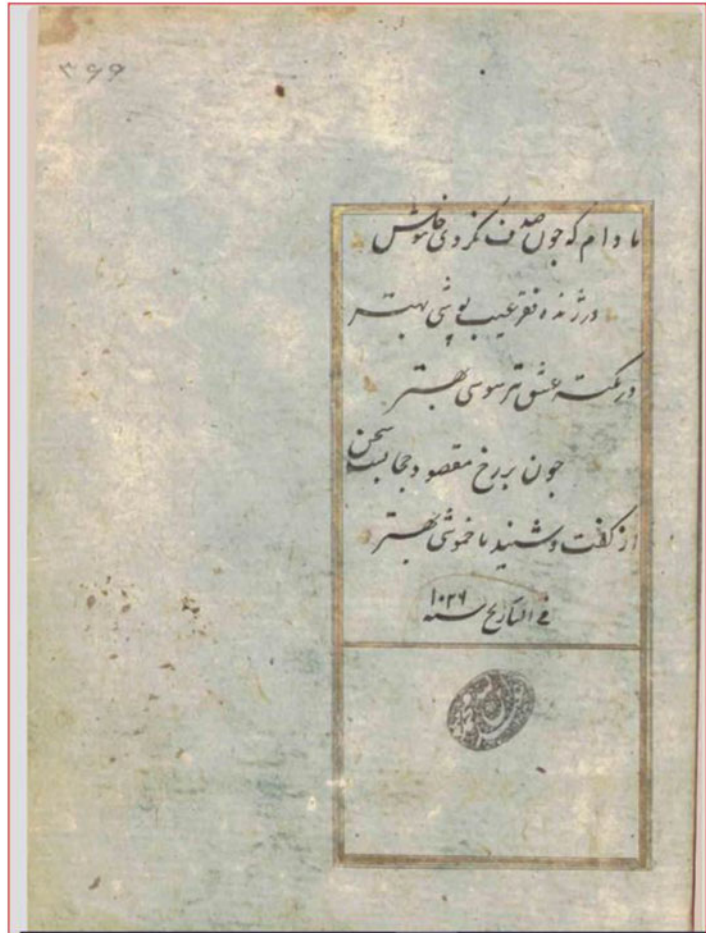 ۳۶۶
مادام که چون صدف نگردی خاموش
در ژنده فقر عیب پوشی بهتر
در نکته عشق تیز هوشی بهتر
چون بر رخ مقصود حجابست سخن
از گفت و شنید ما خموشی بهتر
فی التاریخ سنه ۱۰۲۶